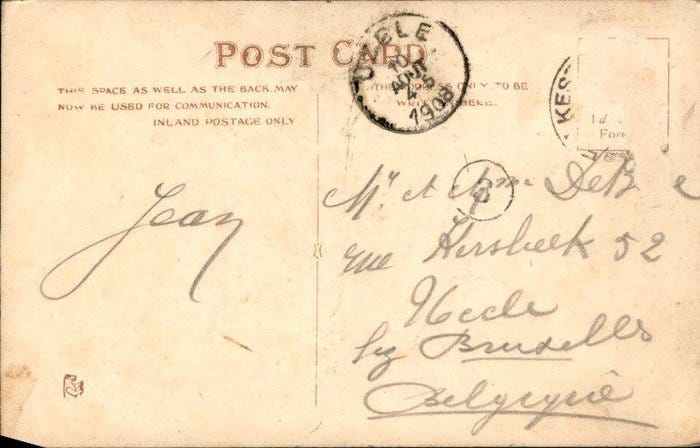 POST CARD
THIS SPACE AS WELL AS THE BACK MAY
NOW BE USED FOR COMMUNICATION.
INLAND POSTAGE ONLY
ONLY TO BE
HERE.
UCCLE
10
AOUT
4-5
1908
KES
1d
Fore
B
Jean
Mr et Mme De B
rue Hersbeek 52
Uccle
by Bruxelles
Belgique